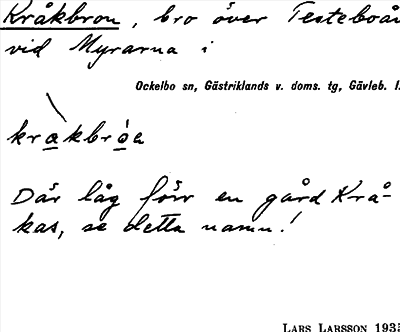 Kråkbron, bro över Testeboån
vid Myrarna i
Ockelbo sn, Gästriklands v. doms. tg, Gävleb. l.
krakbròa
Där låg förr en gård Krå-
kas, se detta namn!
LARS LARSSON 193